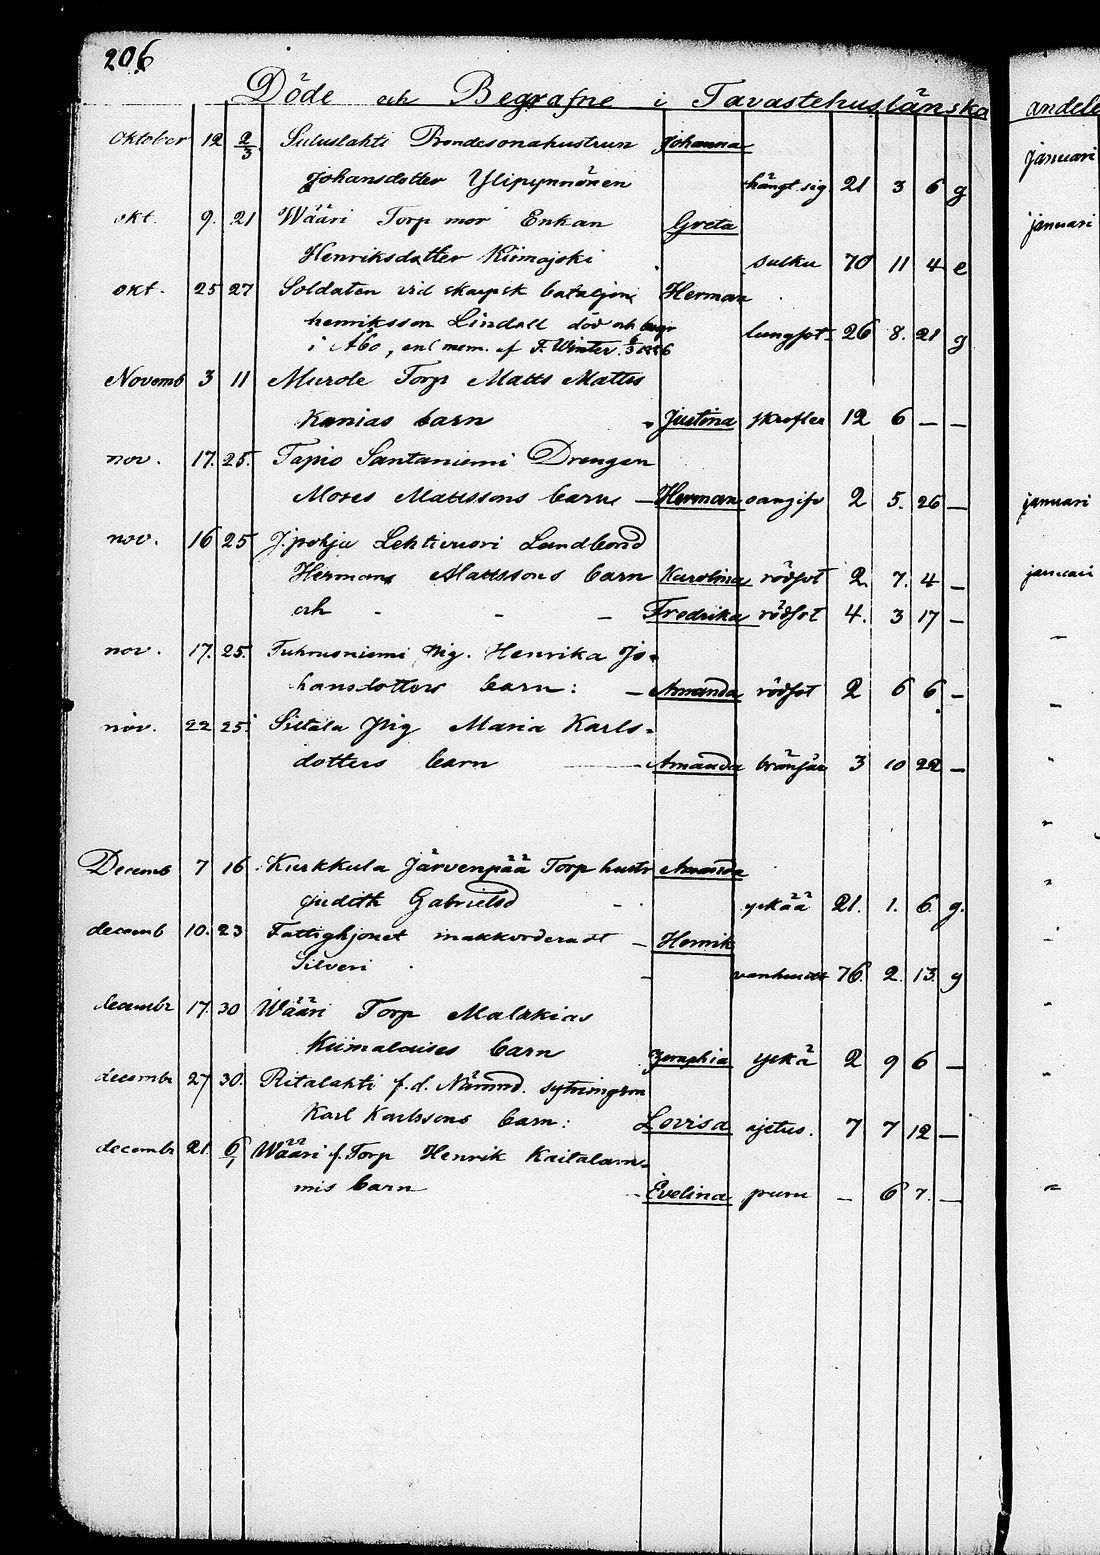 206
Döde och Begrafne i Tavastehuslänska andele
oktober 12 2/3 Siluslahti Bondesonahustrun Johanna
Johansdotter Ylipynnönen hängt sig 21 3 6 g
okt. 9. 21 Wääri Torp mor Enkan Greta
Henriksdotter Kiimajoki sulku 70 11 4 e
okt. 25 27 Soldaten vid skarpsk bataljon Herman
henriksson Lindell död och begr
i Åbo, enl mem. af F. Winter. lungsot 26 8. 21 g
Novemb 3 11 Murole Torp Matts Matts
Kanias barn Justina skrofler 12 6 — —
nov. 17. 25. Tapio Santaniemi Drengen
Moses Mattssons barn — Herman oangifv 2 5. 26 —
nov. 16 25 J.pohja Lehtivuori Landbond
Hermans Mattssons barn Karolina rödsot 2 7. 4 —
och - - — Fredrika rödsot 4. 3 17 —
nov. 17. 25. Tuhrusniemi Pig. Henrika Jo-
hansdotters barn: — Amanda rödsot 2 6 6 —
nov. 22 25 Siltala Pig Maria Karls-
dotters barn — Amanda 3 10 22 —
Decemb 7 16 Kiekkula Järvenpää Torp hustr Amanda
Judith Gabrielsd yskää 21. 1. 6 g.
decemb 10. 23 Fattighjonet inakkorderadt — Henrik
Silveri vanhuutt 76. 2. 13 g
decembr 17. 30 Wääri Torp Malakias
Kiimalaises barn Seraphia yskä 2 9 6 —
decembr 27 30. Ritalahti f.d. Nämnd. sytningsm
Karl Karlssons barn: Lovisa ajetus. 7 7 12 —
decembr 21. 6/1 Wääri f. Torp Henrik Kaitalam-
mis barn — Evelina puru — 6 7. —
Januari
januari
januari
januari